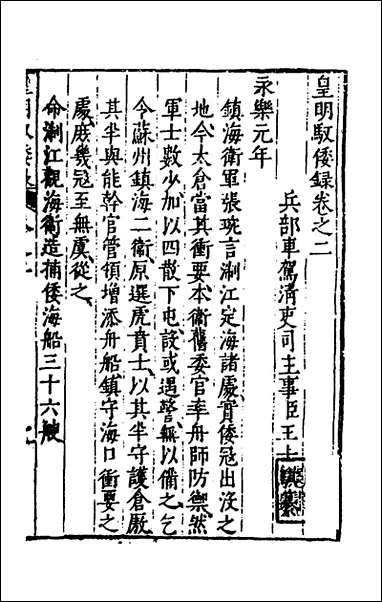 皇明馭倭録卷之二
兵部車駕清吏司主事臣王士
永樂元年
鎮海衛軍張琬言浙江定海諸處實倭冦出沒之
地今太倉當其衝要本衛舊委官率舟師防禦然
軍士數少加以四散下屯設或遇警無以備之乞
令蘇州鎮海二衛原選虎賁士以其半守護倉厫
其半與能幹官管領增添舟船鎮守海口衝要之
處庶幾冦至無虞從之
命浙江觀海衛造捕倭海船三十六艘